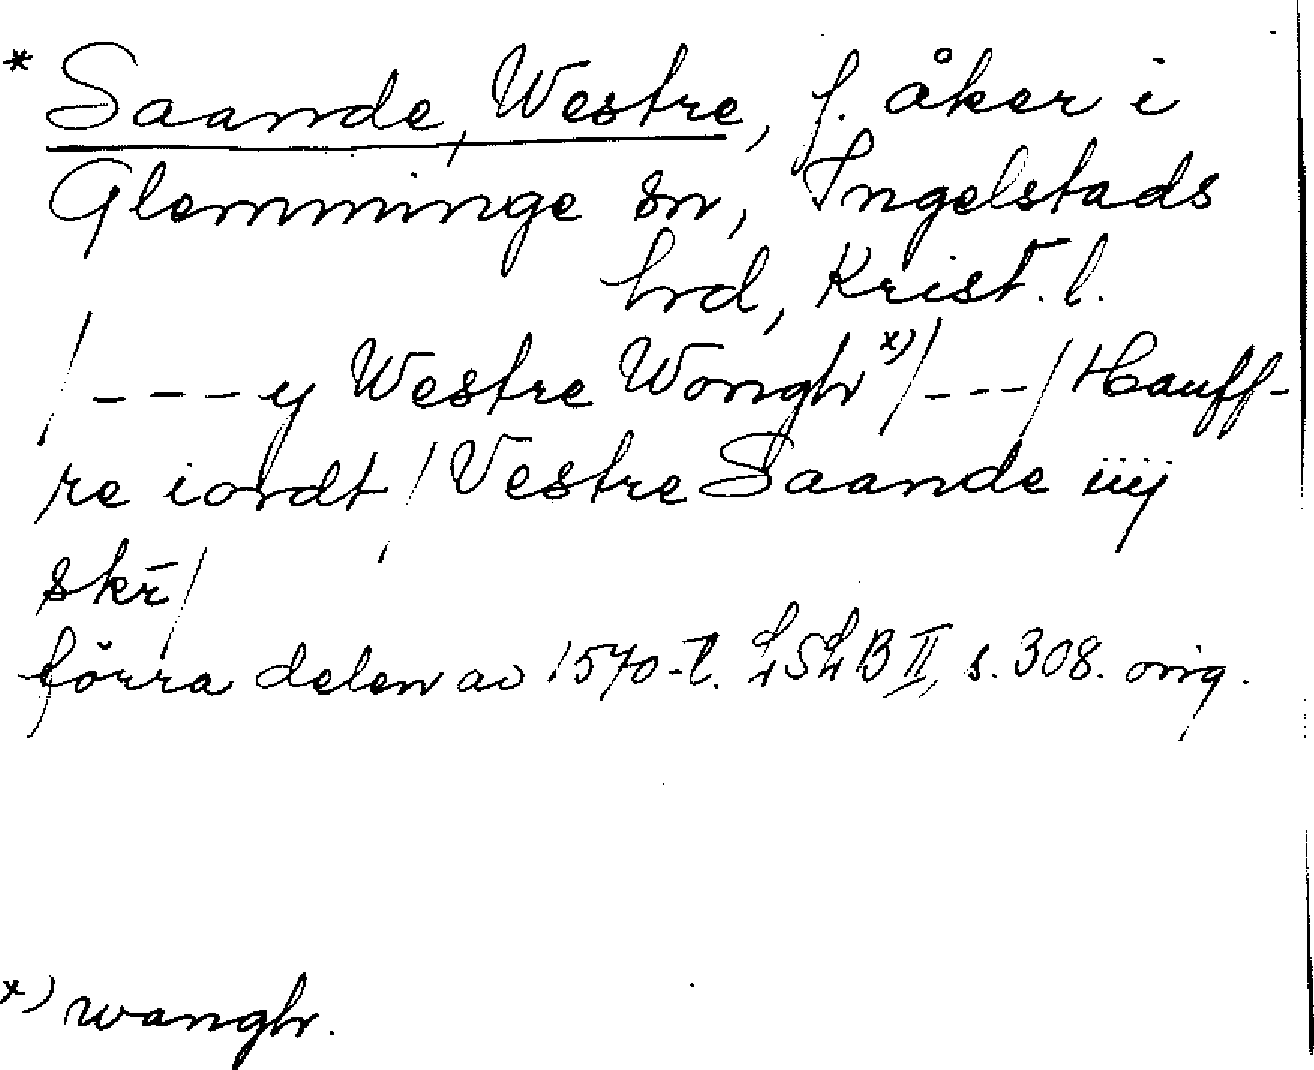 * Saande, Westre, f. åker i
Glemminge sn, Ingelstads
hrd, Krist. l.
/----y Westre Wongh x)/---/Hauff-
re iordt / Vestre Saande iiij
skr̄/
förra delen av 1570-t. LSLB II, s. 308. orig.
x) wangh.